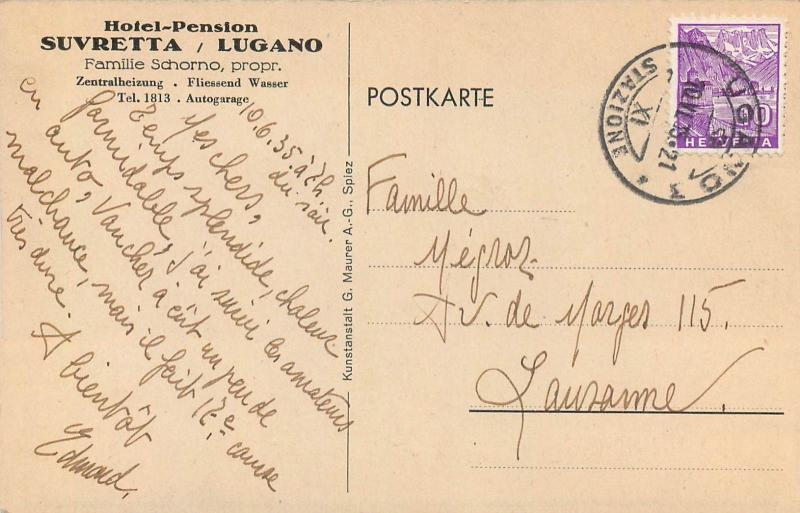 Hotel-Pension
SUVRETTA / LUGANO
Familie Schorno, propr.
Zentralheizung . Fliessend Wasser
Tel. 1813 . Autogarage
10.6.35 à 2h.
du soir.
Mes chers,
Temps splendide, chaleur
formidable, j'ai suivi les amateurs
en auto, Vaucher à eut un peu de
malchance, mais il fait 12e, course
très dure.
A bientôt
Edmond.
Kunstanstalt G. Maurer A.-G., Spiez
POSTKARTE
Famille
Mégroz
Av. de Morges 115.
Lausanne.
LUGANO 3
STAZIONE
XI
10
HELVETIA